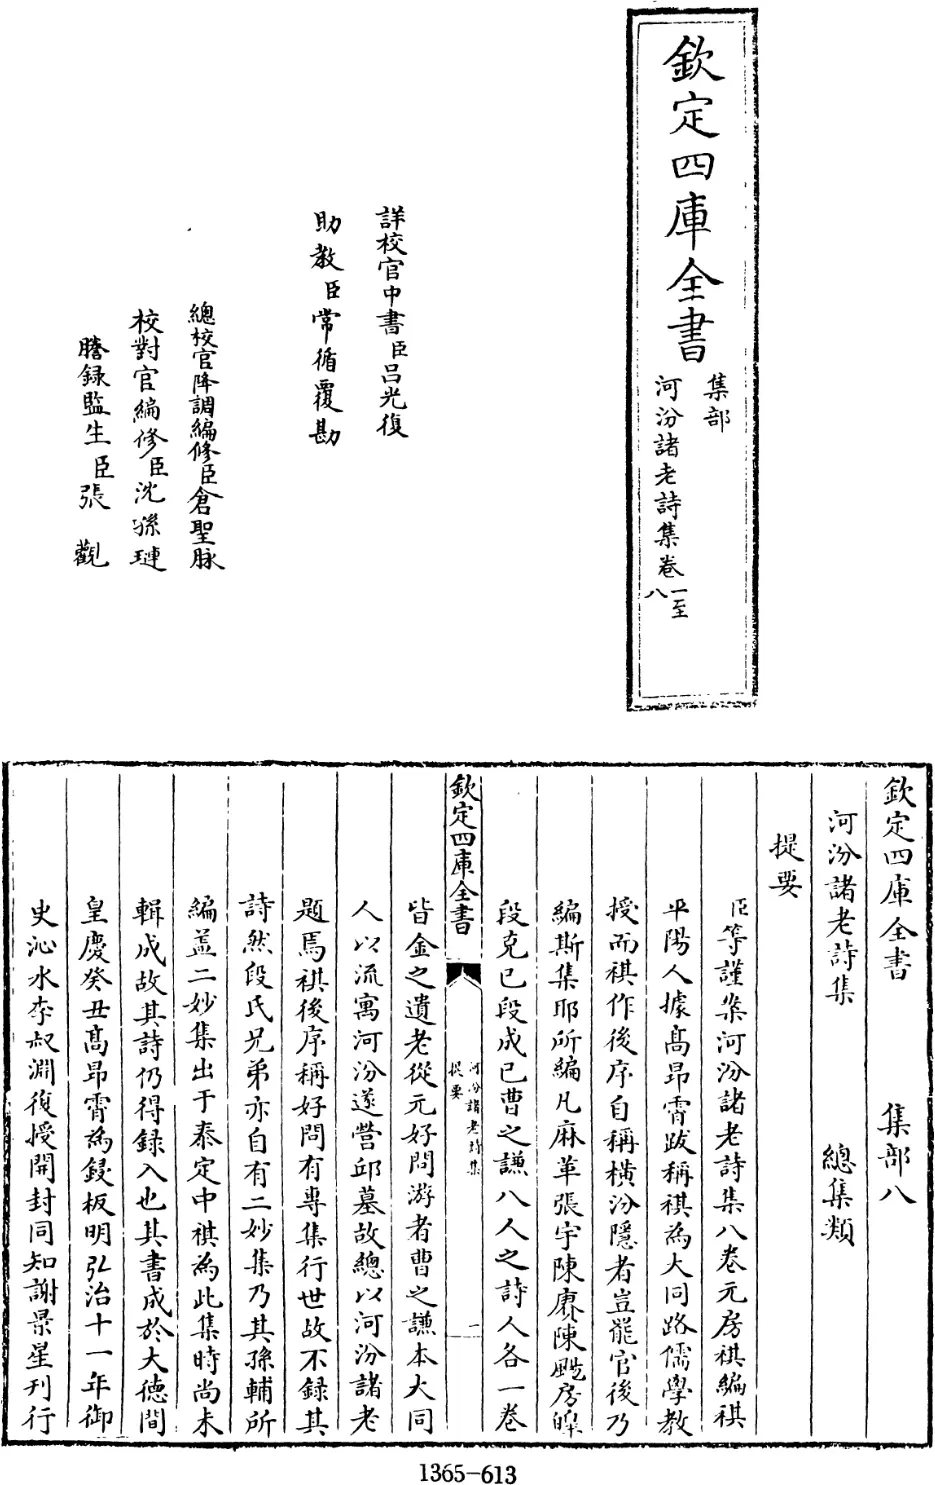 欽定四庫全書
集部
河汾諸老詩集卷一至八
詳校官中書臣呂光復
助教臣常循覆勘
總校官降調編修臣倉聖脉
校對官編修臣沈孫璉
謄録監生臣張觀
欽定四庫全書 集部八
河汾諸老詩集 總集類
提要
臣等謹案河汾諸老詩集八卷元房祺編祺
平陽人據髙昂霄跋稱祺為大同路儒學教
授而祺作後序自稱横汾隱者豈罷官後乃
編斯集耶所編凡麻革張宇陳賡陳颺房皥
段克已段成已曹之謙八人之詩人各一卷
欽定四庫全書
河汾諸老詩集
提要
一
皆金之遺老從元好問游者曹之謙本大同
人以流寓河汾遂營邱墓故總以河汾諸老
題焉祺後序稱好問有専集行世故不録其
詩然段氏兄弟亦自有二妙集乃其孫輔所
編葢二妙集出于泰定中祺為此集時尚未
輯成故其詩仍得録入也其書成於大德間
皇慶癸丑髙昂霄為鋟板明弘治十一年御
史沁水李叔淵復授開封同知謝景星刋行
1365-613